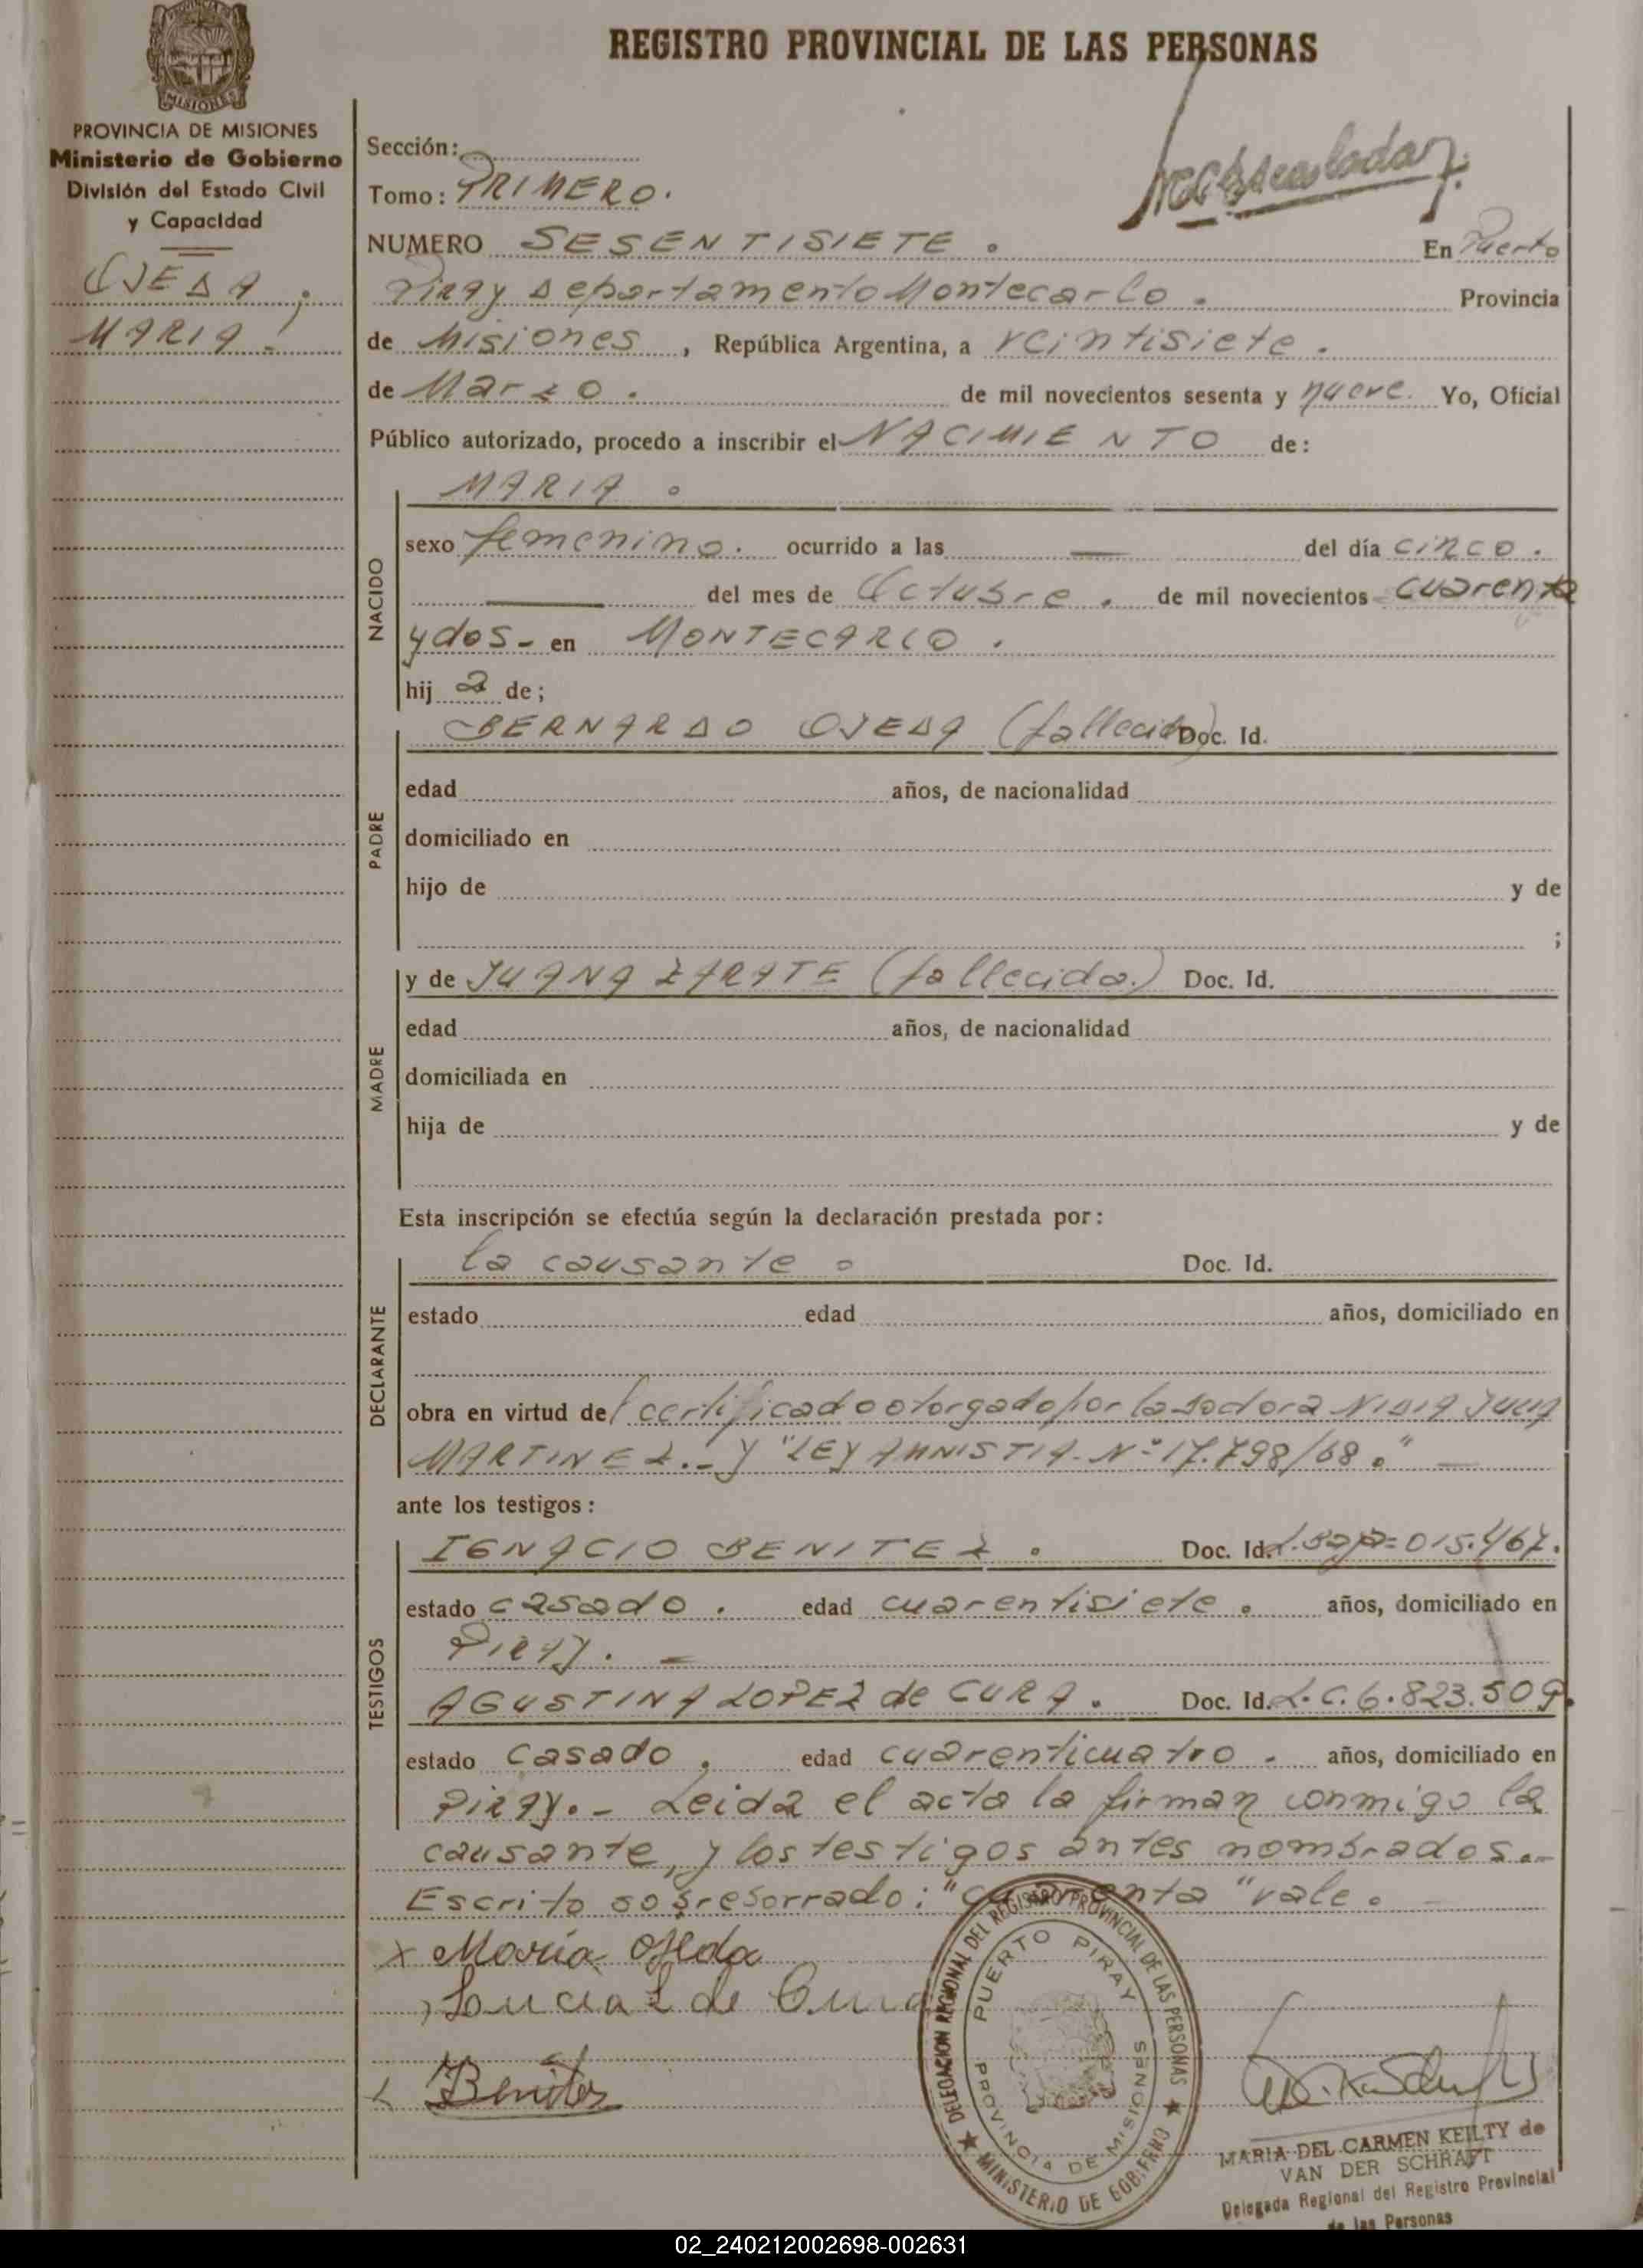 REGISTRO PROVINCIAL DE LAS PERSONAS
MISIONES
PROVINCIA DE MISIONES
Ministerio de Gobierno
División del Estado Civil
y Capacidad
OJEDA,
MARIA.-
Sección:
Tomo: PRIMERO.
NUMERO SESENTISIETE. En Puerto
Piray Departamento Montecarlo. Provincia
de Misiones, República Argentina, a veintisiete.
de Marzo. de mil novecientos sesenta y nueve. Yo, Oficial
Público autorizado, procedo a inscribir el NACIMIENTO de:
NACIDO
MARIA.
sexo femenino. ocurrido a las — del día cinco.
— del mes de Octubre. de mil novecientos cuarenta
y dos- en MONTECARLO.
hij a de;
PADRE
BERNARDO OJEDA (fallecido) Doc. Id.
edad años, de nacionalidad
domiciliado en
hijo de y de
;
MADRE
y de JUANA ZARATE (fallecida.) Doc. Id.
edad años, de nacionalidad
domiciliada en
hija de y de
Esta inscripción se efectúa según la declaración prestada por:
DECLARANTE
la causante. Doc. Id.
estado edad años, domiciliado en
obra en virtud del certificado otorgado por la doctora NIDIA JULIA
MARTINEZ.- y "LEY AMNISTIA- Nº 17.798/68." —
ante los testigos:
TESTIGOS
IGNACIO BENITEZ. Doc. Id. 015.467.
estado casado. edad cuarentisiete. años, domiciliado en
PIRAY. -
AGUSTINA LOPEZ de CURA. Doc. Id. L.C. 6.823.509.
estado casado. edad cuarenticuatro. años, domiciliado en
PIRAY.- Leida el acta la firman conmigo la
causante, y los testigos antes nombrados.-
Escrito sobreborrado: "cuarenta" vale. —
x Maria Ojeda
L de Cura
Benites
DELEGACION REGIONAL DEL REGISTRO PROVINCIAL DE LAS PERSONAS
MINISTERIO DE GOBIERNO
PUERTO PIRAY
PROVINCIA DE MISIONES
MARIA DEL CARMEN KEILTY de
VAN DER SCHRAFT
Delegada Regional del Registro Provincial
de las Personas
02_240212002698-002631